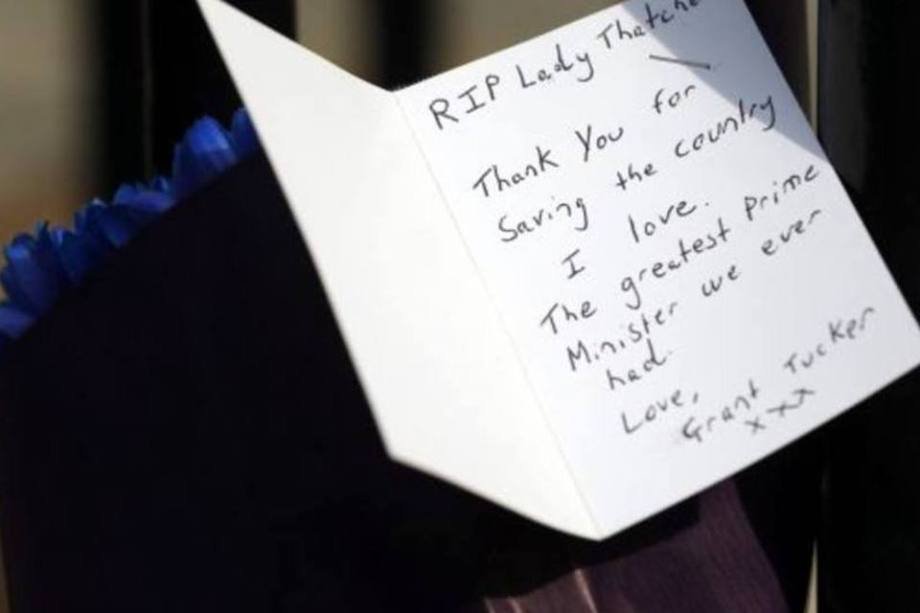 RIP Lady Thatche
Thank You for
Saving the country
I love.
The greatest Prime
Minister we ever
had.
Love,
Grant Tucker
xxx